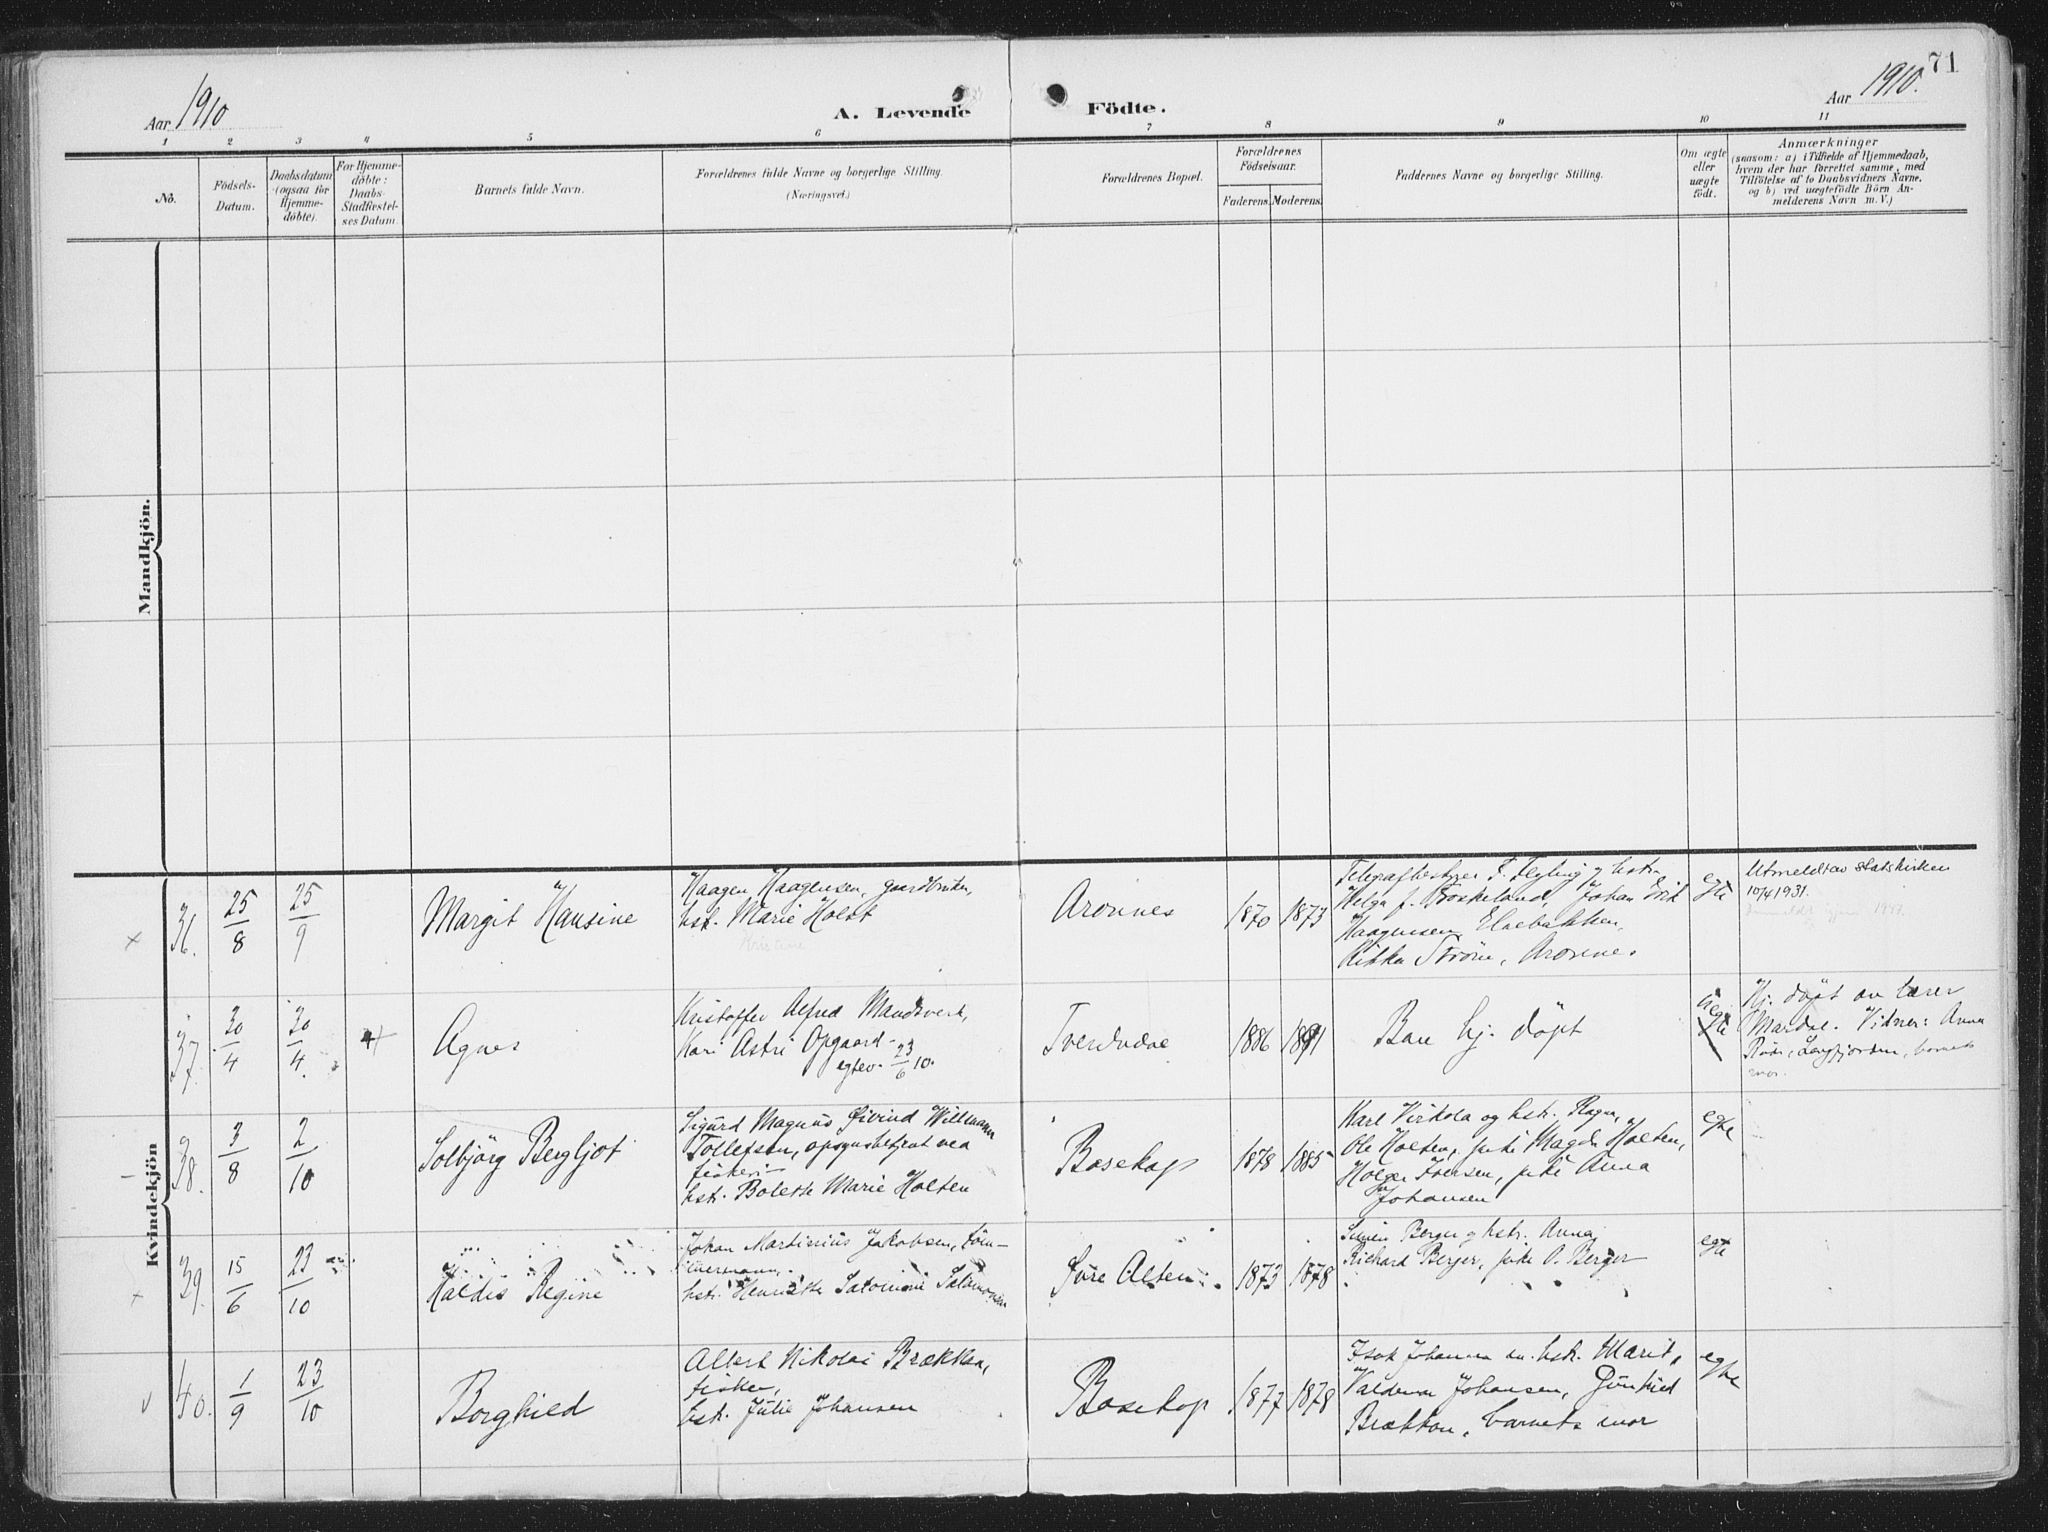 71
Aar 1910
A. Levende Födte.
Aar 1910.
1 2 3 4 5 6 7 8 9 10 11
No.
Födsels-
Datum.
Daabsdatum
(ogsaa for
Hjemme-
döbte).
For Hjemme-
döbte:
Daabs-
Stadfæstel-
ses Datum
Barnets fulde Navn.
Forældrenes fulde Navne og borgerlige Stilling.
(Næringsvei.)
Forældrenes Bopæl.
Forældrenes
Födselsaar.
Faderens. Moderens.
Faddernes Navne og borgerlige Stilling.
Om ægte
eller
uægte
födt.
Anmærkninger
(saasom: a) i Tilfælde af Hjemmedaab,
hvem der har forrettet samme, med
Tilföielse af to Daabsvidners Navne.
og b) ved uægtefödte Börn An-
melderens Navn m. V.)
Mandkjön.
Kvindekjön
36. 25/8 25/9
Margit Hansine
Haagen Haagensen, gaardbruker,
hst. Marie Holst
Kristine
Aronnes
1870 1873
Telegrafbestyrer F. Flegling og hstr.
Helga f. Froskeland, Johan Drik
Haagensen Elvebakken,
Rikka Strøm, Aronnes.
egte
Utmeldt av statskirken
10/4 1931.
37. 30/4 30/4
Agnes
Kristoffer Alfred Mandsverk,
Kari Astri Opgaard
egtev. 23/6 10.
Tverelvdal
1886 1891
Bare hj. døpt
Hj. døpt av lærer
Mardal. Vidner: Anna
Langfjorden, barnets
mor.
38. 3/8 2/10
Solbjörg Bergljot
Sigurd Magnus Øivind Willmann
Tollefsen, opsynsbetjent ved
fiskeri
hst. Bolette Marie Holten
Bosekop
1878 1885
Karl Virkola og hstr. Ragna,
Ole Holten, pike Magda Holten,
Holger Iversen, pike Anna
Johansen
egte
39. 15/6 23/10
Haldis Regine
Johan Martinius Jakobsen, töm-
mermann,
hst. Henrikke Salomine Salamonsen
Øvre Alten
1873 1878
Simen Berger og hstr. Anna,
Richard Berger, pike O. Berger
egte
40. 1/9 23/10
Borghild
Albert Nikolai Brækkan,
fisker,
hst. Julie Johansen
Bosekop
1877 1878
Isak Johansen m. hstr. Marit,
Valdemar Johansen, Gunhild
Brækkan, barnets mor
egte